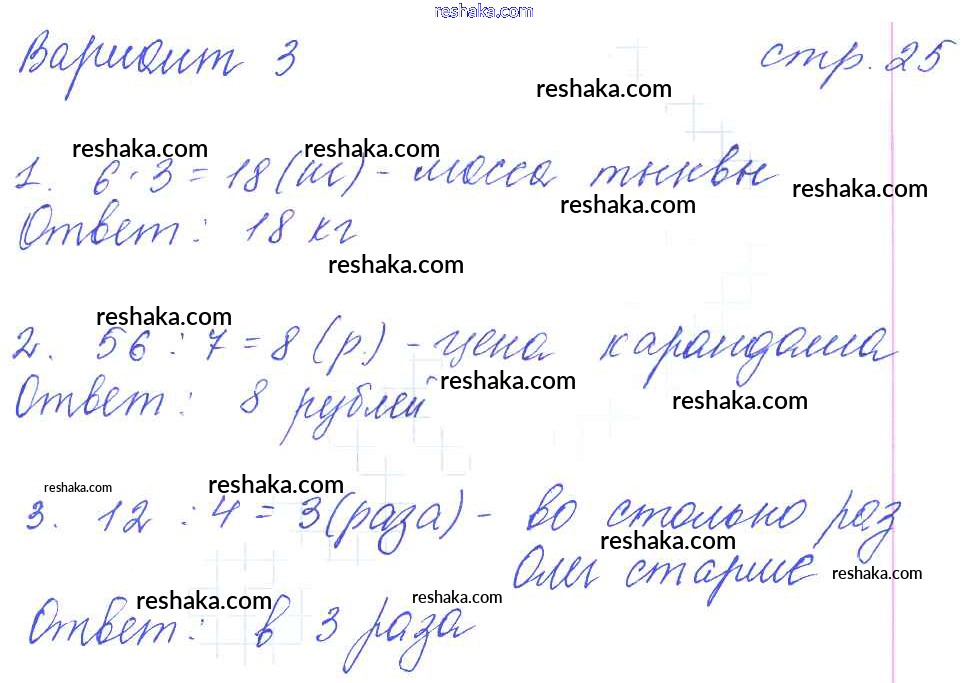 reshaka.com
Вариант 3 стр. 25
reshaka.com
reshaka.com reshaka.com
1. 6 · 3 = 18 (кг) - масса тыквы
reshaka.com
reshaka.com
Ответ: 18 кг
reshaka.com
reshaka.com
2. 56 : 7 = 8 (р.) - цена карандаша
reshaka.com
Ответ: 8 рублей
reshaka.com
reshaka.com reshaka.com
3. 12 : 4 = 3 (раза) - во столько раз
reshaka.com
Олег старше
reshaka.com
reshaka.com reshaka.com
Ответ: в 3 раза